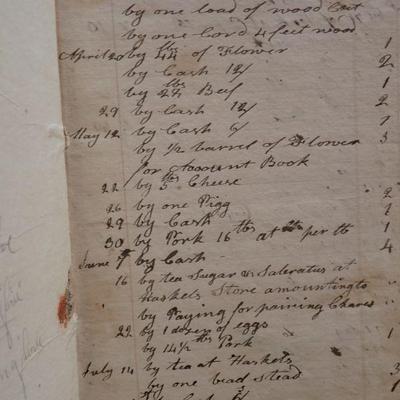 by one load of wood Cort
by one Cord 4 feet wood
April 20 by 44 lbs of Flower 1
by Cash 12/ 2
by 22 lbs Beef 1
29 by Cash 12/ 2
May 12 by Cash 6/ 1
by 1/2 barrel of Flower 3
for Account Book
22 by 5 lbs Cheese
26 by one Pigg 2
29 by Cash 1
30 by Pork 16 lbs at per lb 1
June 7 by Cash 4
16 by tea Sugar & Saleratus at
Haskels Store amounting to
by Paying for pairing Chares
22 by 1 dozen of eggs
by 14 1/2 lbs Pork 1
July 14 by tea at Haskels
by one bead stead 3